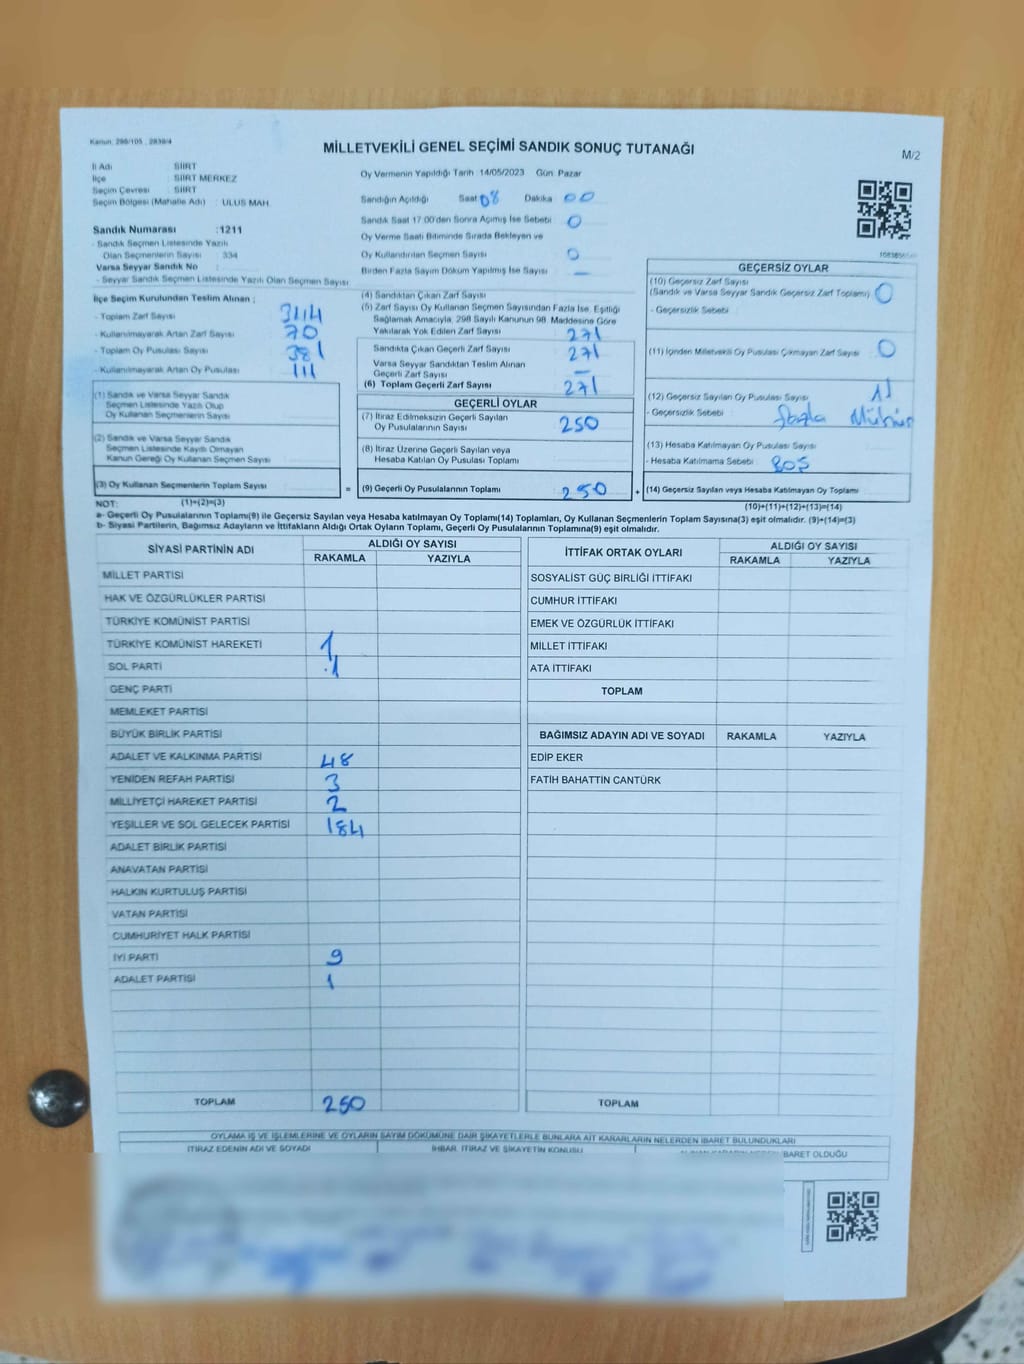 Kanun: 298/105 , 2839/4
MİLLETVEKİLİ GENEL SEÇİMİ SANDIK SONUÇ TUTANAĞI
M/2
İl Adı SİİRT
İlçe SİİRT MERKEZ
Seçim Çevresi : SİİRT
Seçim Bölgesi (Mahalle Adı) : ULUS MAH.
Sandık Numarası :1211
- Sandık Seçmen Listesinde Yazılı
Olan Seçmenlerin Sayısı : 334
Varsa Seyyar Sandık No :
- Seyyar Sandık Seçmen Listesinde Yazılı Olan Seçmen Sayısı
Oy Vermenin Yapıldığı Tarih 14/05/2023 Gün Pazar
Sandığın Açıldığı Saat 08 Dakika 00
Sandık Saat 17.00'den Sonra Açılmış İse Sebebi 0
Oy Verme Saati Bitiminde Sırada Bekleyen ve
Oy Kullandırılan Seçmen Sayısı 0
Birden Fazla Sayım Döküm Yapılmış İse Sayısı —
İlçe Seçim Kurulundan Teslim Alınan ;
- Toplam Zarf Sayısı 344
- Kullanılmayarak Artan Zarf Sayısı 70
- Toplam Oy Pusulası Sayısı 381
- Kullanılmayarak Artan Oy Pusulası 111
(1) Sandık ve Varsa Seyyar Sandık
Seçmen Listesinde Yazılı Olup
Oy Kullanan Seçmenlerin Sayısı
(2) Sandık ve Varsa Seyyar Sandık
Seçmen Listesinde Kayıtlı Olmayan
Kanun Gereği Oy Kullanan Seçmen Sayısı
(3) Oy Kullanan Seçmenlerin Toplam Sayısı
(1)+(2)=(3)
(4) Sandıktan Çıkan Zarf Sayısı
(5) Zarf Sayısı Oy Kullanan Seçmen Sayısından Fazla İse, Eşitliği
Sağlamak Amacıyla, 298 Sayılı Kanunun 98. Maddesine Göre
Yakılarak Yok Edilen Zarf Sayısı 271
Sandıkta Çıkan Geçerli Zarf Sayısı 271
Varsa Seyyar Sandıktan Teslim Alınan
Geçerli Zarf Sayısı —
(6) Toplam Geçerli Zarf Sayısı 271
GEÇERLİ OYLAR
(7) İtiraz Edilmeksizin Geçerli Sayılan
Oy Pusulalarının Sayısı 250
(8) İtiraz Üzerine Geçerli Sayılan veya
Hesaba Katılan Oy Pusulası Toplamı
= (9) Geçerli Oy Pusulalarının Toplamı 250 +
GEÇERSİZ OYLAR
(10) Geçersiz Zarf Sayısı
(Sandık ve Varsa Seyyar Sandık Geçersiz Zarf Toplamı) 0
- Geçersizlik Sebebi :
(11) İçinden Milletvekili Oy Pusulası Çıkmayan Zarf Sayısı 0
(12) Geçersiz Sayılan Oy Pusulası Sayısı
- Geçersizlik Sebebi : fazla Mühür
(13) Hesaba Katılmayan Oy Pusulası Sayısı
- Hesaba Katılmama Sebebi BOŞ
(14) Geçersiz Sayılan veya Hesaba Katılmayan Oy Toplamı
(10)+(11)+(12)+(13)=(14)
NOT:
a- Geçerli Oy Pusulalarının Toplamı(9) ile Geçersiz Sayılan veya Hesaba Katılmayan Oy Toplamı(14) Toplamları, Oy Kullanan Seçmenlerin Toplam Sayısına(3) eşit olmalıdır. (9)+(14)=(3)
b- Siyasi Partilerin, Bağımsız Adayların ve İttifakların Aldığı Ortak Oyların Toplamı, Geçerli Oy Pusulalarının Toplamına(9) eşit olmalıdır.
SİYASİ PARTİNİN ADI ALDIĞI OY SAYISI
RAKAMLA YAZIYLA
MİLLET PARTİSİ
HAK VE ÖZGÜRLÜKLER PARTİSİ
TÜRKİYE KOMÜNİST PARTİSİ
TÜRKİYE KOMÜNİST HAREKETİ 1
SOL PARTİ 1
GENÇ PARTİ
MEMLEKET PARTİSİ
BÜYÜK BİRLİK PARTİSİ
ADALET VE KALKINMA PARTİSİ 48
YENİDEN REFAH PARTİSİ 3
MİLLİYETÇİ HAREKET PARTİSİ 2
YEŞİLLER VE SOL GELECEK PARTİSİ 184
ADALET BİRLİK PARTİSİ
ANAVATAN PARTİSİ
HALKIN KURTULUŞ PARTİSİ
VATAN PARTİSİ
CUMHURİYET HALK PARTİSİ
İYİ PARTİ 9
ADALET PARTİSİ 1
TOPLAM 250
İTTİFAK ORTAK OYLARI ALDIĞI OY SAYISI
RAKAMLA YAZIYLA
SOSYALİST GÜÇ BİRLİĞİ İTTİFAKI
CUMHUR İTTİFAKI
EMEK VE ÖZGÜRLÜK İTTİFAKI
MİLLET İTTİFAKI
ATA İTTİFAKI
TOPLAM
BAĞIMSIZ ADAYIN ADI VE SOYADI RAKAMLA YAZIYLA
EDİP EKER
FATİH BAHATTİN CANTÜRK
TOPLAM
OYLAMA İŞ VE İŞLEMLERİNE VE OYLARIN SAYIM DÖKÜMÜNE DAİR ŞİKAYETLERLE BUNLARA AİT KARARLARIN NELERDEN İBARET BULUNDUKLARI
İTİRAZ EDENİN ADI VE SOYADI İHBAR, İTİRAZ VE ŞİKAYETİN KONUSU İBARET OLDUĞU